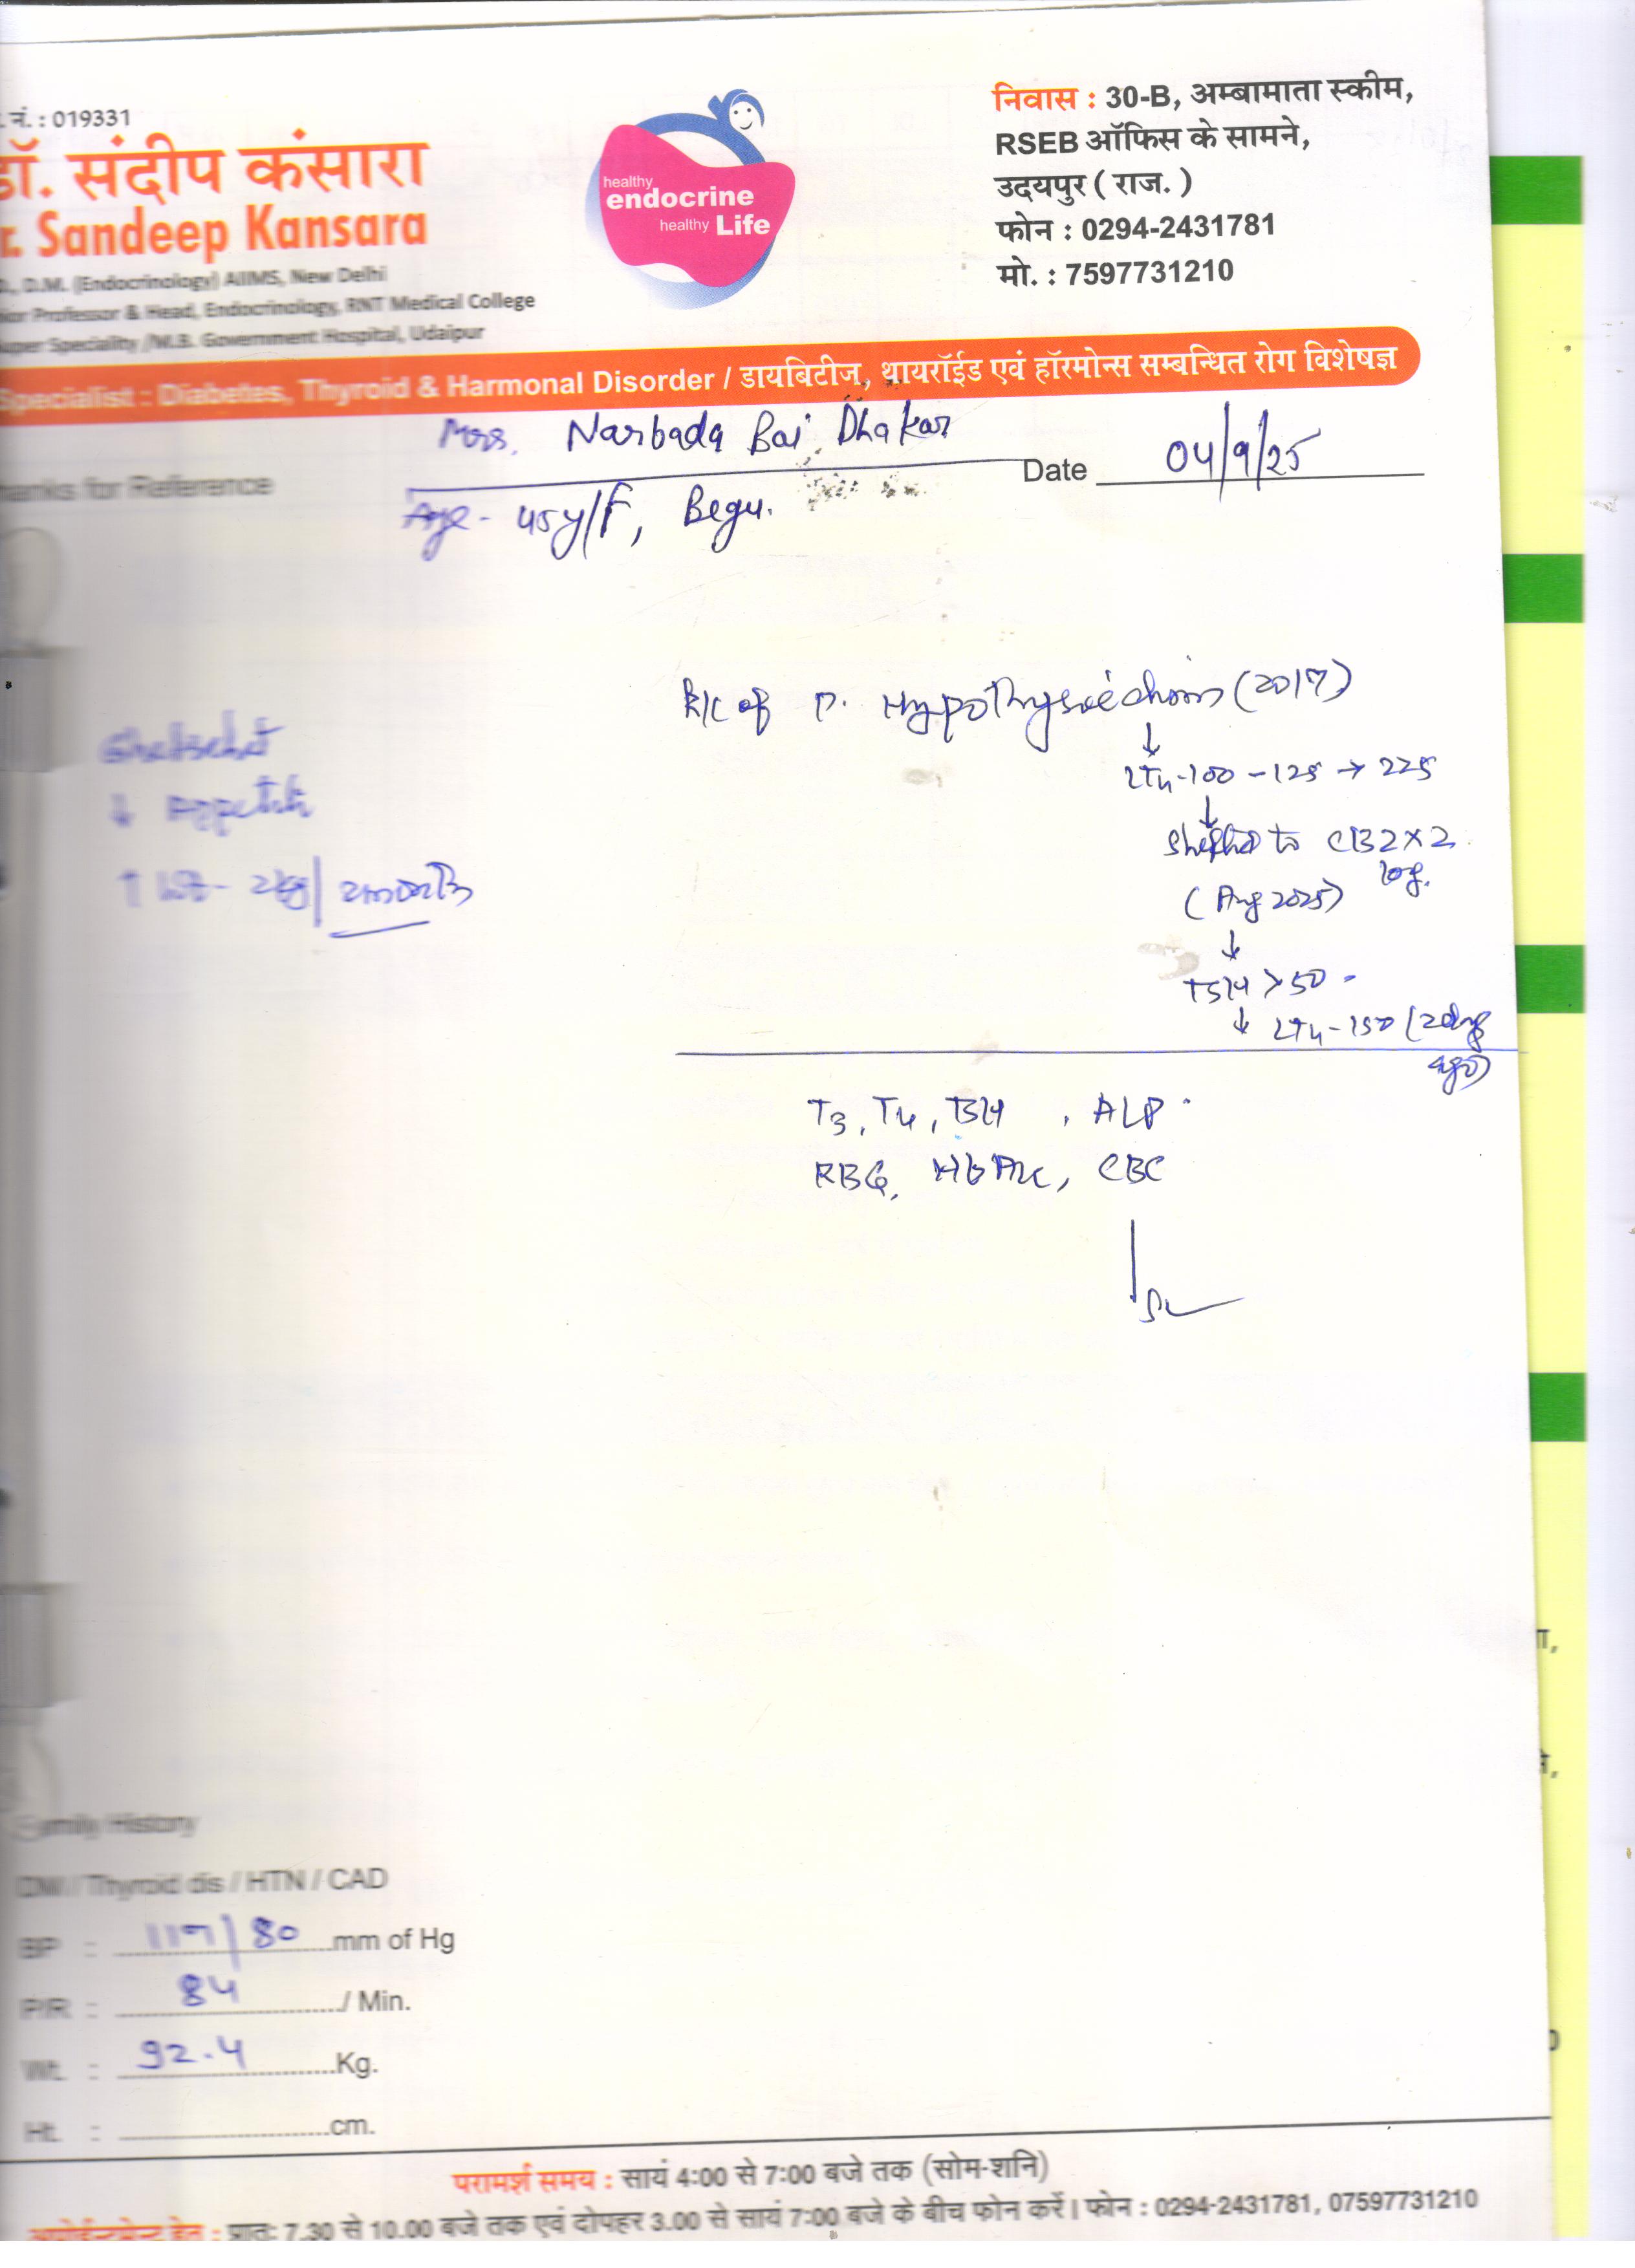 . नं. : 019331
डॉ. संदीप कंसारा
r. Sandeep Kansara
D.M. (Endocrinology) AIIMS, New Delhi
Professor & Head, Endocrinology, RNT Medical College
Super Speciality /M.B. Government Hospital, Udaipur
healthy
endocrine
healthy Life
निवास : 30-B, अम्बामाता स्कीम,
RSEB ऑफिस के सामने,
उदयपुर ( राज. )
फोन : 0294-2431781
मो. : 7597731210
Specialist : Diabetes, Thyroid & Harmonal Disorder / डायबिटीज, थायरॉईड एवं हॉरमोन्स सम्बन्धित रोग विशेषज्ञ
Mrs. Narbada Bai Dhakar
hanks for Reference
Date 04/9/25
Age - 45y/F, Begu.
K/C of P. Hypothyroidism (2017)
↓
LT4-100 - 125 → 225
↓
Shifted to CB2 x 2
(Aug 2025)
↓
TSH > 50
↓ LT4-150 (20 days
ago)
↓ Appetite
↑ Wt - 2kg/2months
T3, T4, TSH , ALP
RBG, HbA1c, CBC
Family History
DM / Thyroid dis / HTN / CAD
BP : 117/80 mm of Hg
P/R : 84 / Min.
Wt. : 92.4 Kg.
Ht. : cm.
परामर्श समय : सायं 4:00 से 7:00 बजे तक (सोम-शनि)
अपोईन्टमेन्ट हेतु : प्रातः 7.30 से 10.00 बजे तक एवं दोपहर 3.00 से सायं 7:00 बजे के बीच फोन करें। फोन : 0294-2431781, 07597731210